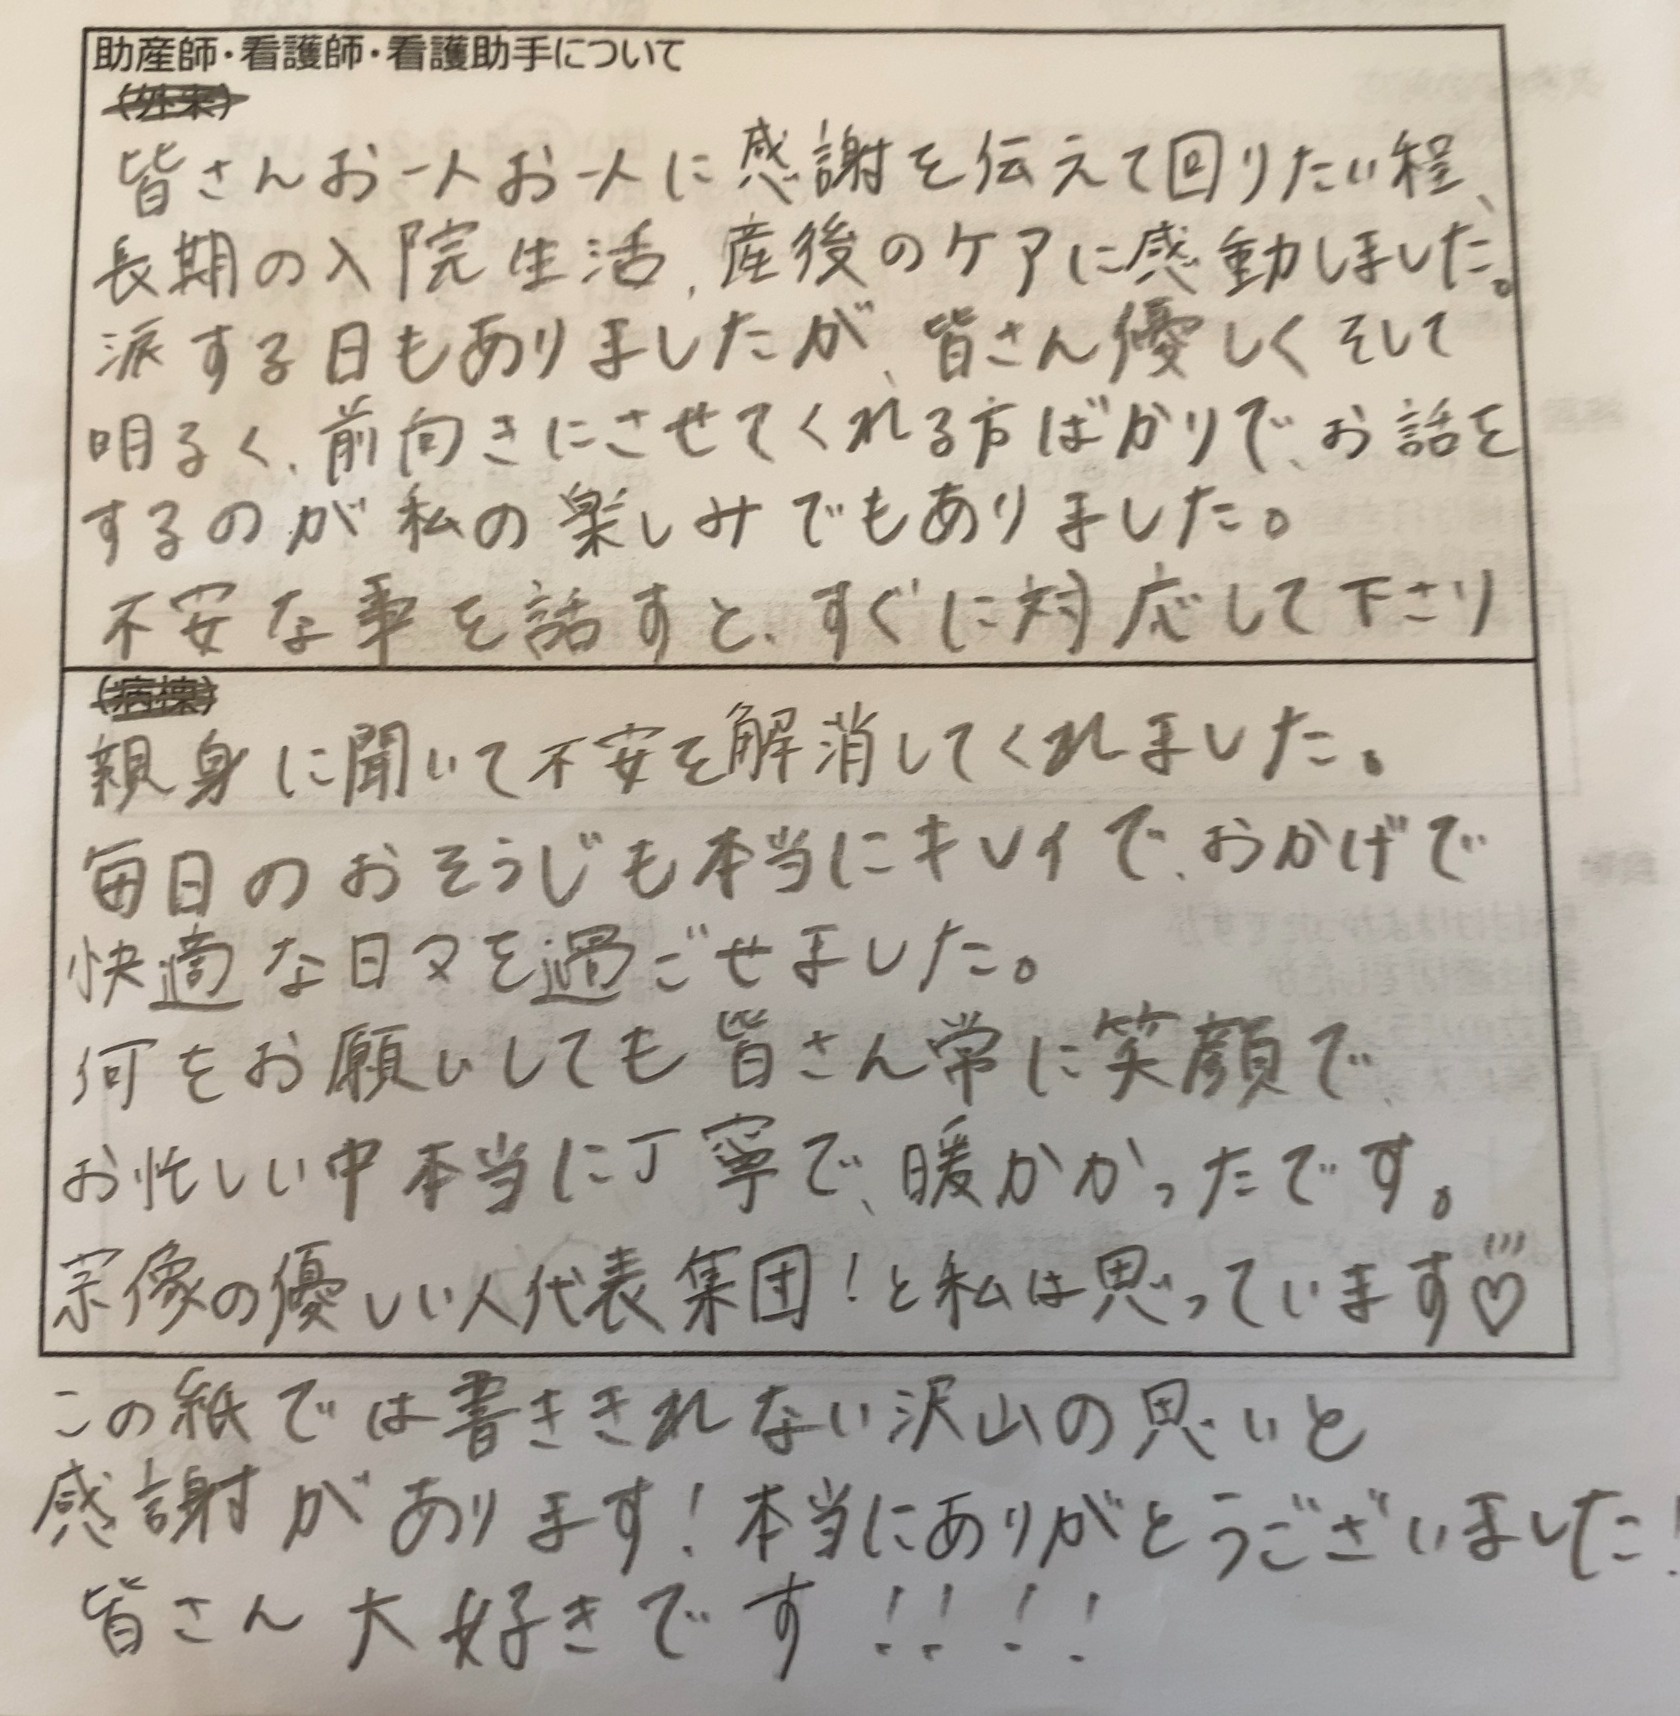 助産師・看護師・看護助手について
(外来)
皆さんお一人お一人に感謝を伝えて回りたい程、
長期の入院生活、産後のケアに感動しました。
涙する日もありましたが、皆さん優しくそして
明るく、前向きにさせてくれる方ばかりで、お話を
するのが私の楽しみでもありました。
不安な事を話すと、すぐに対応して下さり
(病棟)
親身に聞いて不安を解消してくれました。
毎日のおそうじも本当にキレイで、おかげで
快適な日々を過ごせました。
何をお願いしても皆さん常に笑顔で、
お忙しい中本当に丁寧で、暖かかったです。
宗像の優しい人代表集団!と私は思っています♡
この紙では書ききれない沢山の思いと
感謝があります!本当にありがとうございました!
皆さん大好きです!!!!